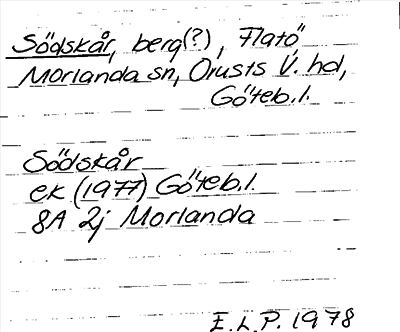 Södskår, berg(?), Flatö,
Morlanda sn, Orusts V. hd,
Göteb.l.
Södskår
ek (1977) Göteb.l.
8A 2j Morlanda
E.L.P. 1978